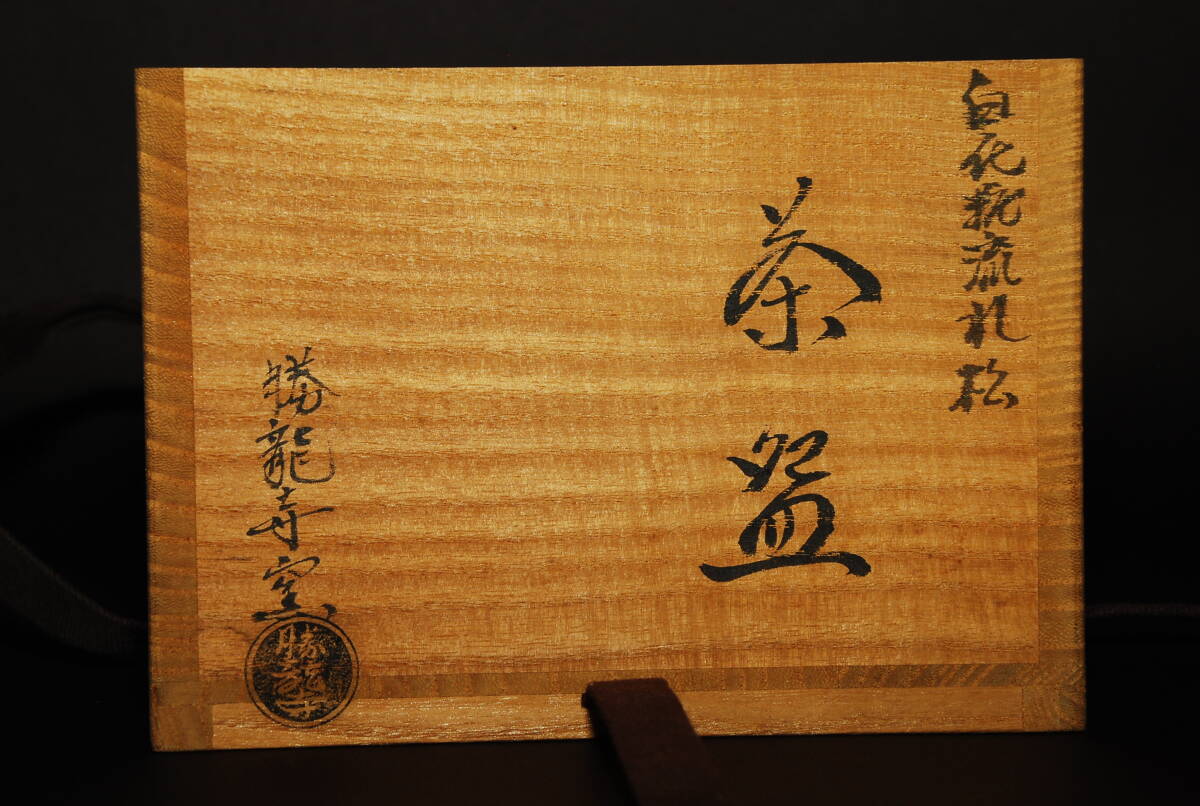 白化粧流れ松
茶盌
勝龍寺窯
勝龍寺